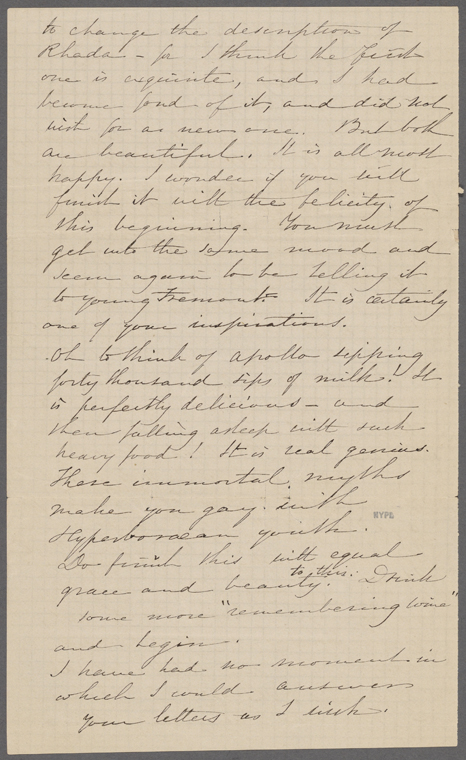 to change the description of
Rhada - for I think the first
one is exquisite, and I had
become fond of it, and did not
wish for a new one. But both
are beautiful. It is all most
happy. I wonder if you will
finish it with the felicity of
this beginning. You must
get into the same mood and
seem again to be telling it
to young Fremont. It is certainly
one of your inspirations.
Oh to think of Apollo sipping
forty thousand sips of milk! It
is perfectly delicious - and
then falling asleep with such
heavy food! It is real genius.
These immortal myths
make you gay with
Hyperboraean youth.
NYPL
Do finish this with equal
grace and beauty to this. Drink
some more "remembering wine"
and begin.
I have had no moment in
which I could answer
your letters as I wish.